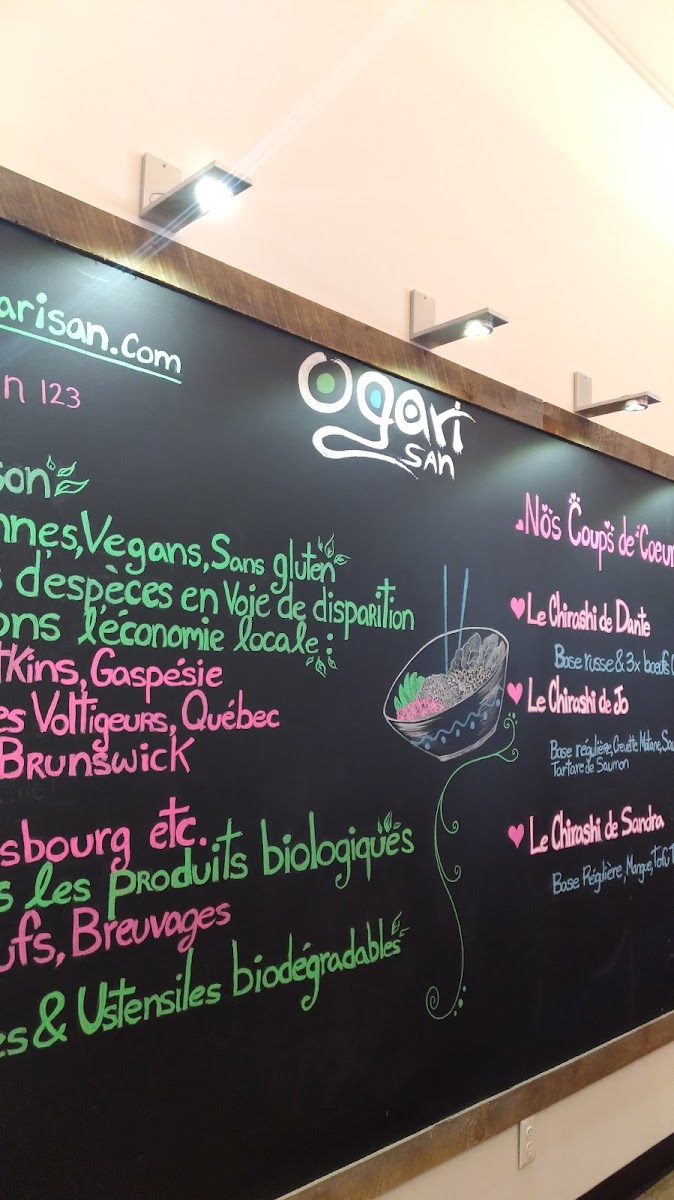 arisan.com
n 123
son
nnes, Vegans, Sans gluten
s d'espèces en Voie de disparition
ons l'économie locale :
tkins, Gaspésie
es Voltigeurs, Québec
Brunswick
sbourg etc.
s les produits biologiques
ufs, Breuvages
es & Ustensiles biodégradables
Ogari
SAN
Nos Coups de Coeur
Le Chirashi de Dante
Base russe & 3x boeufs
Le Chirashi de Jo
Base régulière, Crevette Matane, Sau
Tartare de Saumon
Le Chirashi de Sandra
Base Régulière, Mangue, Tofu